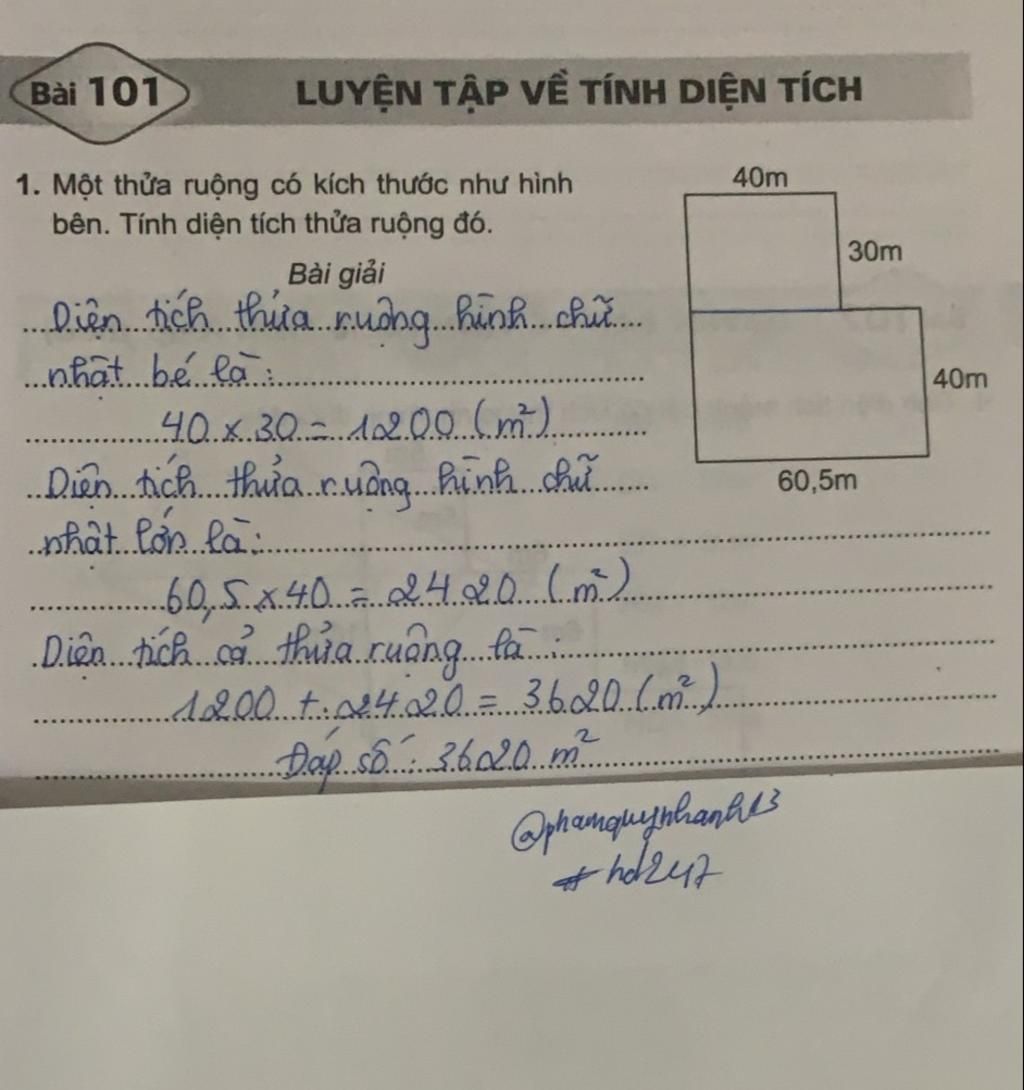 Bài 101
LUYỆN TẬP VỀ TÍNH DIỆN TÍCH
1. Một thửa ruộng có kích thước như hình
bên. Tính diện tích thửa ruộng đó.
40m
30m
40m
60,5m
Bài giải
Diện tích thửa ruộng hình chữ
nhật bé là:
40 x 30 = 1200 (m²)
Diện tích thửa ruộng hình chữ
nhật lớn là:
60,5 x 40 = 2420 (m²)
Diện tích cả thửa ruộng là:
1200 + 2420 = 3620 (m²)
Đáp số: 3620 m²
@phamquynhanh13
#hd247